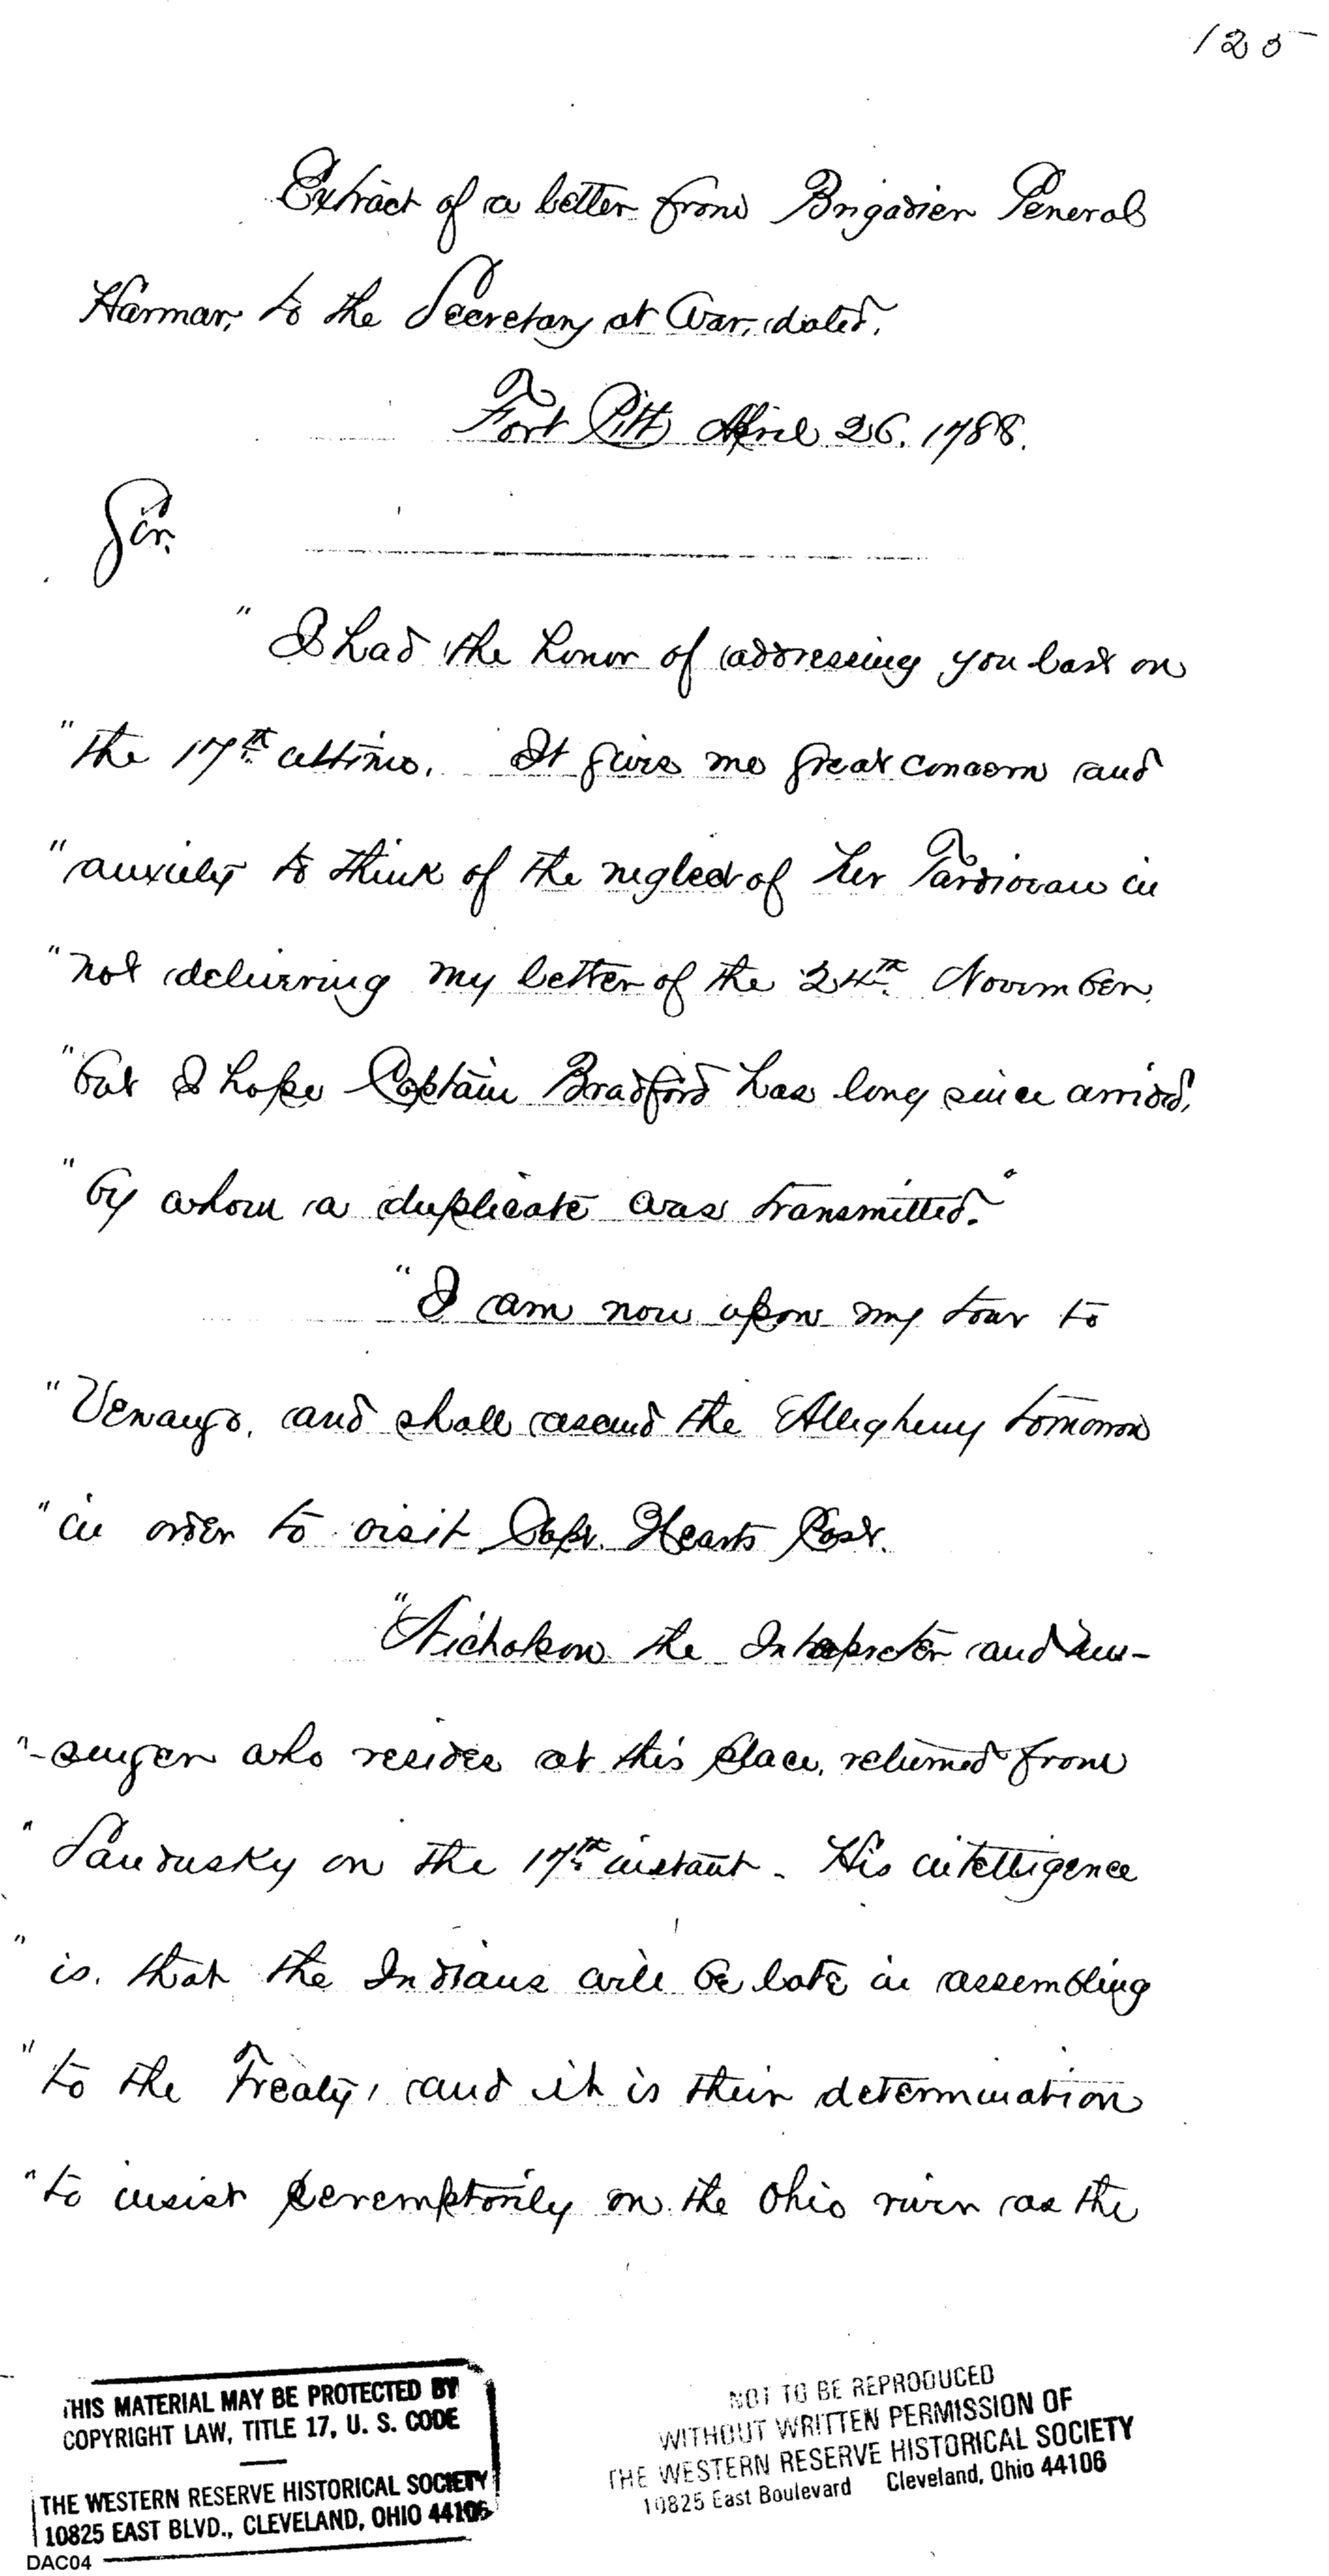 125
Extract of a letter from Brigadier General
Harmar, to the Secretary at War, dated,
Fort Pitt April 26. 1788.
Sir.
"I had the honor of addressing you last on
"the 17th ultimo. It gives me great concern and
"anxiety to think of the neglect of Mr Tardiveau in
"not delivering my letter of the 24th November.
"but I hope Captain Bradford has long since arrived,
"by whom a duplicate was transmitted."
"I am now upon my tour to
"Venango, and shall ascend the Allegheny tomorrow
"in order to visit Capt. Hearts Post.
"Nicholson the Interpreter and mes-
"-senger who resides at this place, returned from
"Sandusky on the 17th instant. His intelligence
"is, that the Indians will be late in assembling
"to the Treaty, and it is their determination
"to insist peremptorily on the Ohio river as the
THIS MATERIAL MAY BE PROTECTED BY
COPYRIGHT LAW, TITLE 17, U. S. CODE
THE WESTERN RESERVE HISTORICAL SOCIETY
10825 EAST BLVD., CLEVELAND, OHIO 44106
DAC04
NOT TO BE REPRODUCED
WITHOUT WRITTEN PERMISSION OF
THE WESTERN RESERVE HISTORICAL SOCIETY
10825 East Boulevard Cleveland, Ohio 44106